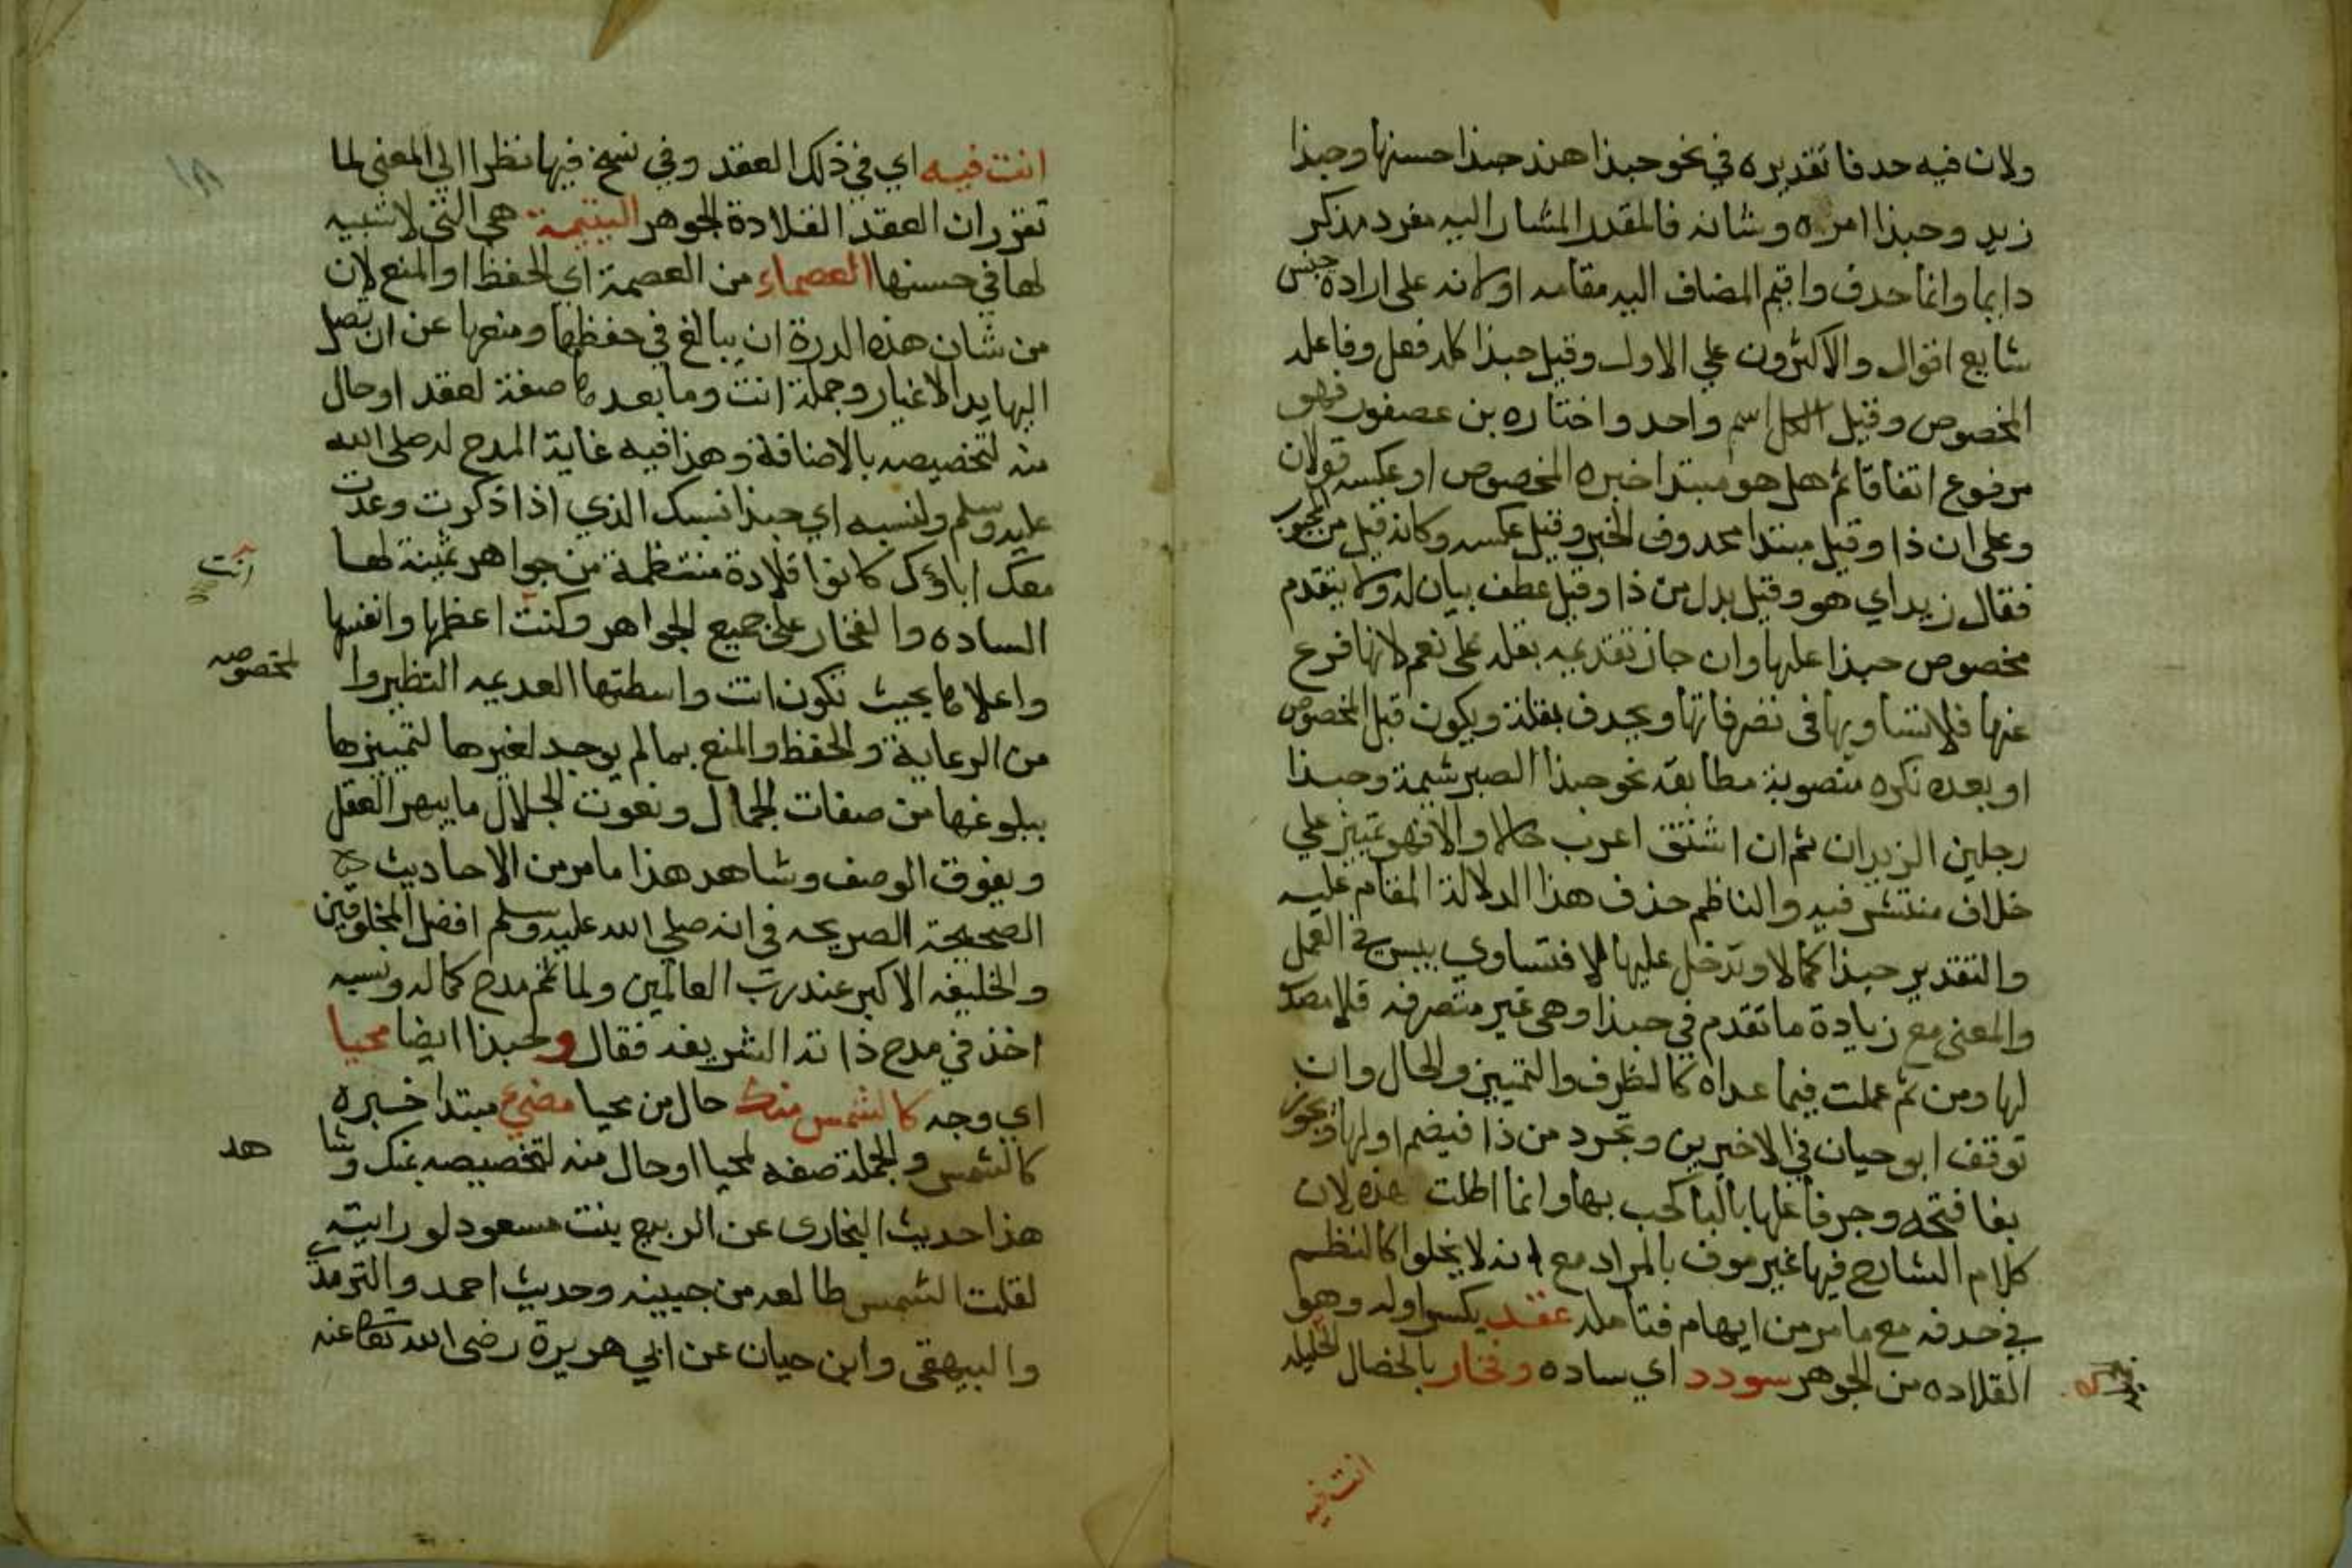 ولان فيه حدفا تقديره في نحو حبذا هند حبذا حسنها وحبذا
زيد وحبذا امره وشانه فالمقدر المشار اليه مفرد مذكر
دايما وانما حدف واقيم المضاف اليه مقامه اولانه على ارادة جنس
شايع اقوال والاكثرون علي الاول وقيل حبذا كله فعل وفاعله
المخصوص وقيل الكل اسم واحد واختاره بن عصفور فهو
مرفوع اتفاقا ثم هل هو مبتدا خبره المخصوص او عكسه قولان
وعلى ان ذا وقيل مبتدا محدوف الخبر وقيل عكسه وكانه قيل من المحبوب
فقال زيد اي هو وقيل بدل من ذا وقيل عطف بيان له ولا يتقدم
مخصوص حبذا عليها وان جاز تقديمه بقله على نعم لانها فرع
عنها فلا تساويها في تصرفاتها ويحدف بقلة ويكون قبل المخصوص
او بعده نكره منصوبة مطابقه نحو حبذا الصبر شيمة وحبذا
رجلين الزيدان ثم ان اشتق اعرب حالا والا فهو تمييز علي
خلاف منتشر فيه والناظم حذف هذا الدلالة المقام عليه
والتقدير حبذا كمالا وتدخل عليها لا فتساوي بيس في العمل
والمعنى مع زيادة ما تقدم في حبذا وهي غير متصرفه فلا مصدر
لها ومن ثم عملت فيما عداه كالظرف والتمييز والحال وان
توقف ابو حيان في الاخيرين وتجرد من ذا فيضم اولها ويجوز
بقا فتحه وجر فاعلها بالبا كحب بها وانما اطلت هذه لان
كلام الشارح فيها غير موف بالمراد مع انه لا يخلوا كالنظم
في حدفه مع ما مر من ايهام فتامله عقد بكسر اوله وهو
القلاده من الجوهر سودد اي ساده وفخار بالخصال الجليله
انت فيه
انت فيه اي في ذلك العقد وفي نسخ فيها نظرا الي المعنى لما
تقرر ان العقد القلادة الجوهر اليتيمة هي التي لا شبيه
لها في حسنها العصماء من العصمة اي الحفظ او المنع لان
من شان هذه الدرة ان يبالغ في حفظها ومنعها عن ان تصل
اليها يد الاغيار وجملة انت وما بعدها صفة لعقد او حال
منه لتخصيصه بالاضافة وهذا فيه غاية المدح له صلى الله
عليه وسلم ولنسبه اي حبذا نسبك الذي اذا ذكرت وعدت
معك اباؤك كانوا قلادة منتظمة من جواهر ثمينة لها
انت
الساده والفخار على جميع الجواهر وكنت اعظمها وانفسها
واعلاها بحيث تكون انت واسطتها العديمه النظير وا
لمخصوصه
من الرعاية والحفظ والمنع بما لم يوجد لغيرها لتمييزها
ببلوغها من صفات الجمال ونعوت الجلال ما يبهر العقل
ويفوق الوصف وشاهد هذا ما مر من الاحاديث
الصحيحة الصريحه في انه صلي الله عليه وسلم افضل المخلوقين
والخليفه الاكبر عند رب العالمين ولما تم مدح كماله ونسبه
اخذ في مدح ذاته الشريفه فقال وحبذا ايضا محيا
اي وجه كالشمس منك حال من محيا مضيء مبتدا خبره
كالشمس والجملة صفه لمحيا او حال منه لتخصيصه بمنك وشا
هد
هذا حديث البخاري عن الربيع بنت مسعود لو رايته
لقلت الشمس طالعه من جبينه وحديث احمد والترمذي
والبيهقي وابن حيان عن ابي هريرة رضي الله تعالى عنه